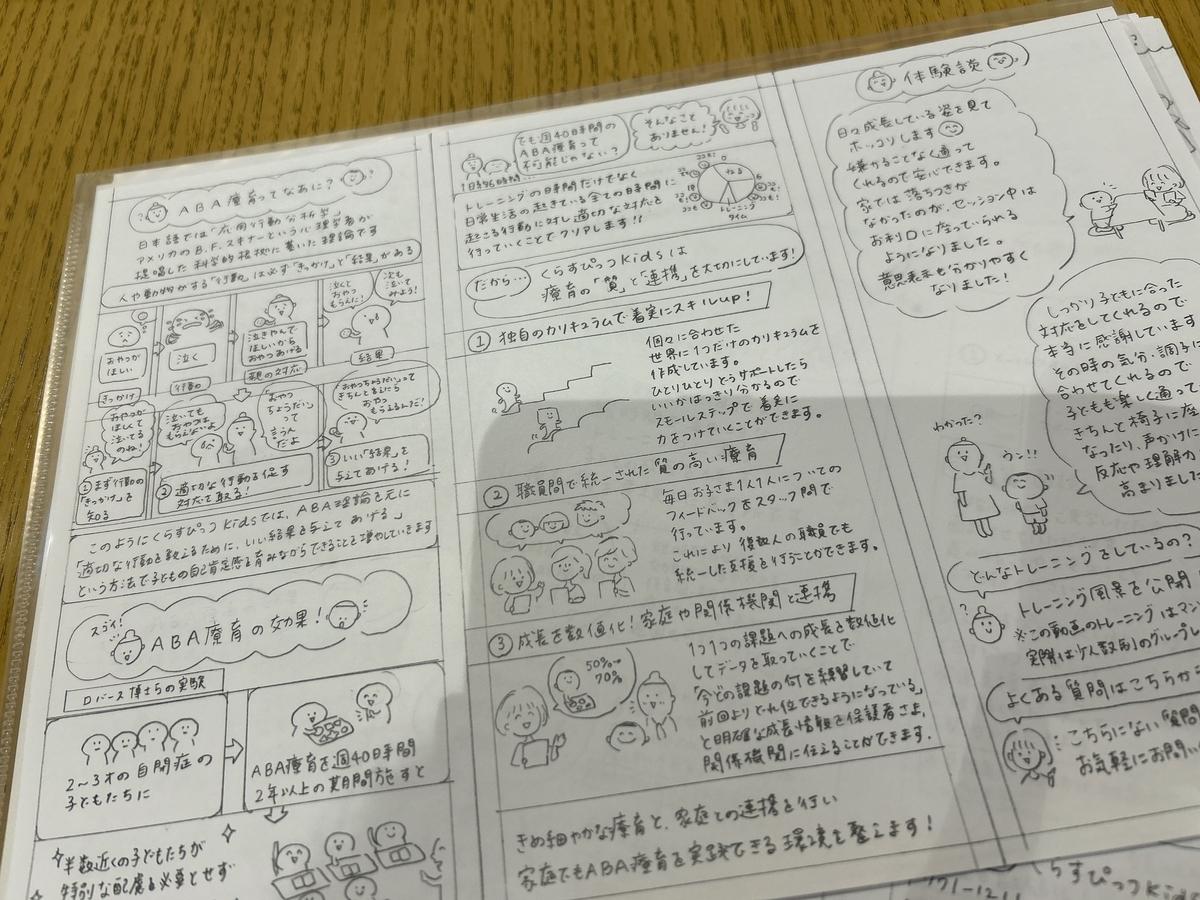 ABA療育ってなあに?
日本語では「応用行動分析学」
アメリカのB.F.スキナーという心理学者が
提唱した科学的根拠に基いた理論です
人や動物がする「行動」は必ず「きっかけ」と「結果」がある
おやつが
ほしい
きっかけ
泣く
行動
泣きやんで
ほしいから
おやつあげる
親の対応
泣くと
おやつ
もらえた!
次も
泣いて
みよう!
結果
おやつが
ほしくて
泣いてる
のね!
①まず行動の
「きっかけ」を
知る
泣いても
おやつは
もらえないよ
「おやつ
ちょうだい」
って
言うん
だよ
②適切な行動を促す
対応で取る!
「おやつちょうだい」って
きちんと言えたら
おやつ
もらえるんだ!
③いい「結果」を
与えてあげる!
このようにくらすぴっつKidsでは、ABA理論を元に
「適切な行動を教えるために、いい結果を与えてあげる」
という方法で子どもの自己肯定感を育みながらできることを増やしていきます
スゴイ!
ABA療育の効果!
ロバース博士らの実験
2~3才の自閉症の
子どもたちに
ABA療育を週40時間
2年以上の期間施すと
半数近くの子どもたちが
特別な配慮を必要とせず
でも週40時間の
ABA療育って
不可能じゃない?
そんなこと
ありません!
1日約6時間…
トレーニングの時間だけでなく
日常生活の起きている全ての時間に
起こる行動に対し適切な対応を
行っていくことでクリアします!!
ねる
トレーニング
タイム
だから…
くらすぴっつKidsは
療育の「質」と「連携」を大切にしています!
①独自のカリキュラムで着実にスキルup!
個々に合わせた
世界に1つだけのカリキュラムを
作成しています。
ひとりひとりどうサポートしたら
いいかはっきり分かるので
スモールステップで着実に
力をつけていくことができます。
②職員間で統一された質の高い療育
毎日お子さま1人1人についての
フィードバックをスタッフ間で
行っています。
これにより複数人の職員でも
統一した支援を行うことができます。
③成長を数値化!家庭や関係機関と連携
50%→
70%
1つ1つの課題への成長を数値化
してデータを取っていくことで
「今どの課題の何を練習していて
前回よりどれ位できるようになっている」
と明確な成長情報を保護者さま、
関係機関に伝えることができます。
きめ細やかな療育と、家庭との連携を行い
家庭でもABA療育を実践できる環境を整えます!
体験談
日々成長している姿を見て
ホッコリします
嫌がることなく通って
くれるので安心できます。
家では落ちつきが
なかったのが、セッション中は
お利口に座っていられる
ようになりました。
意思表示も分かりやすく
なりました!
しっかり子どもに合った
対応をしてくれるので
本当に感謝しています
その時の気分・調子に
合わせてくれるので
子どもも楽しく通って
きちんと椅子に座
なったり、声かけに
反応や理解力
高まりました
わかった?
ウン!!
どんなトレーニングをしているの?
トレーニング風景を公開
※この動画のトレーニングはマン
実際は少人数制のグループレ
よくある質問はこちらから
こちらにない質問
お気軽にお問い
らすぴっつKids